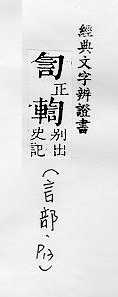 經典文字辨證書
訇正輷别出史記(言部·P13)